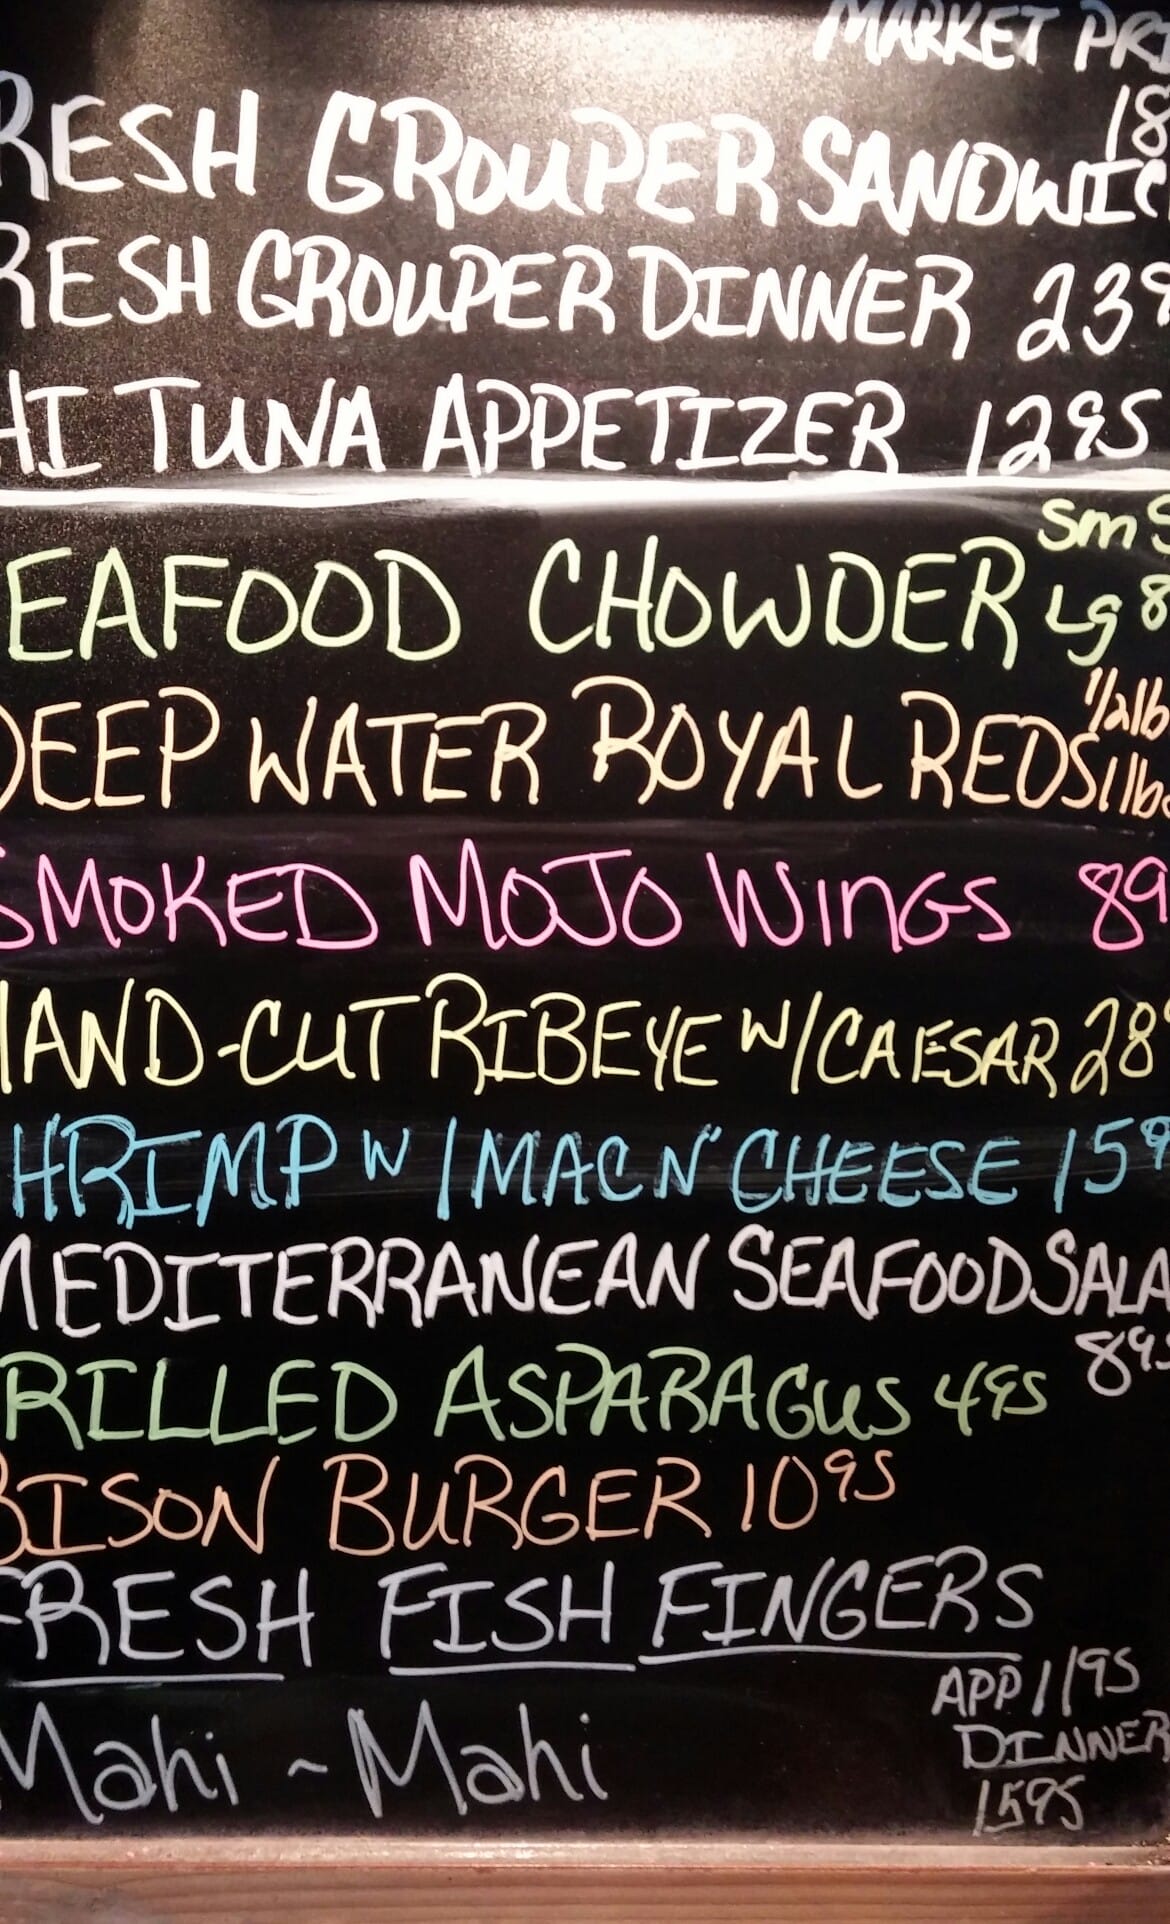 MARKET PRI
18
RESH GROUPER SANDWIC
RESH GROUPER DINNER 239
HI TUNA APPETIZER 1295
Sm 5
EAFOOD CHOWDER Lg 8
1/2lb
DEEP WATER ROYAL REDS 1lb
SMOKED MOJO WINGS 89
HAND-CUT RIBEYE W/CAESAR 289
HRIMP W/MAC N' CHEESE 159
MEDITERRANEAN SEAFOOD SALA
895
RILLED ASPARAGUS 495
BISON BURGER 1095
FRESH FISH FINGERS
APP 1195
Mahi ~ Mahi
DINNER
1595